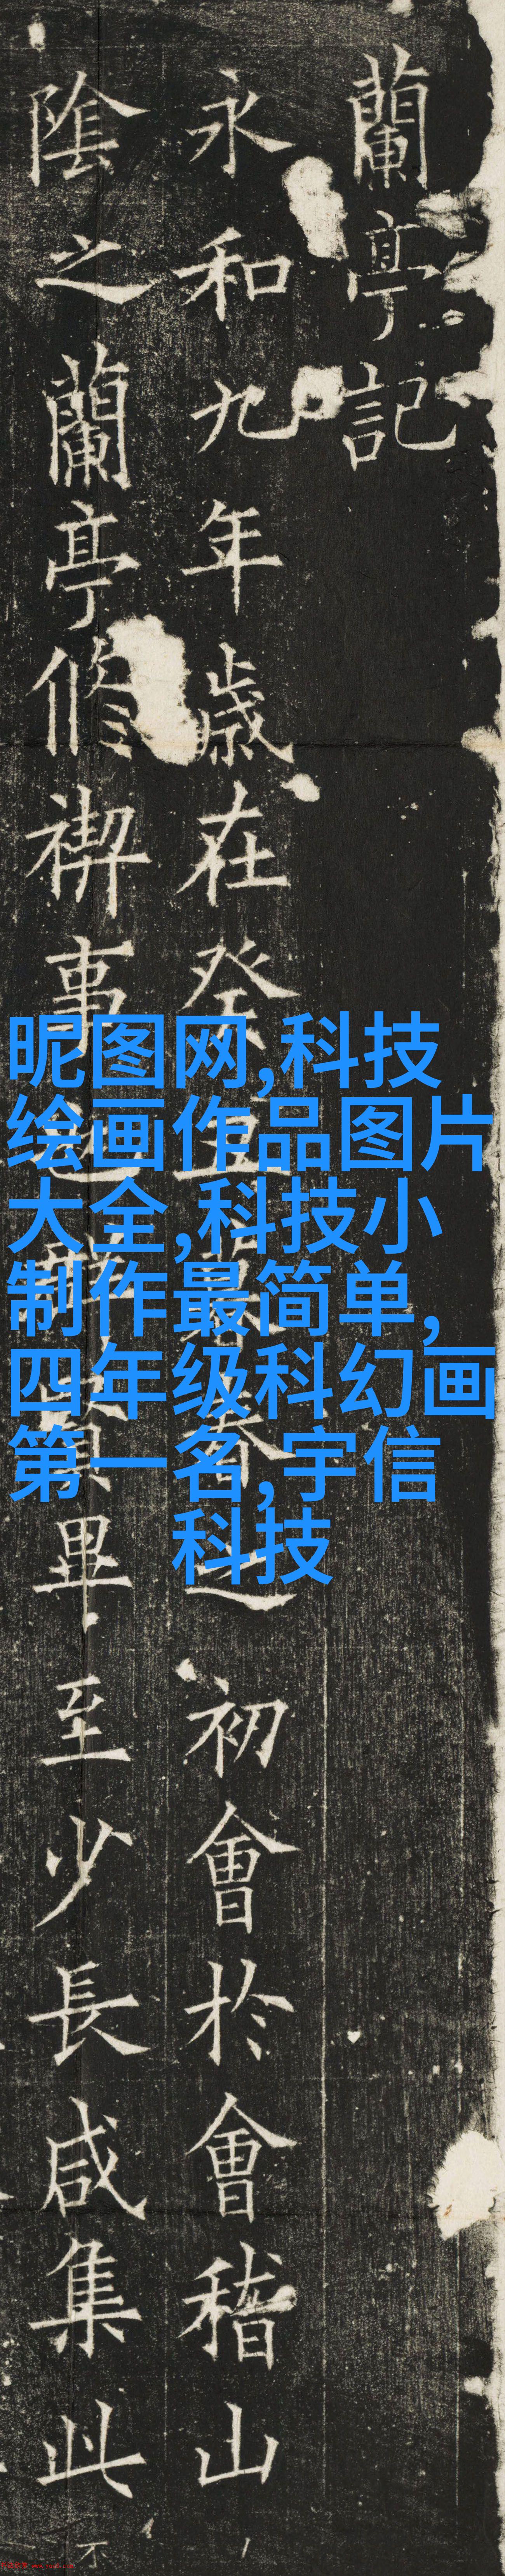 蘭亭記
永和九年歲在癸丑春之初會於會稽山
陰之蘭亭修禊事也賢畢至少長咸集此
昵图网,科技
绘画作品图片
大全,科技小
制作最简单,
四年级科幻画
第一名,宇信
科技